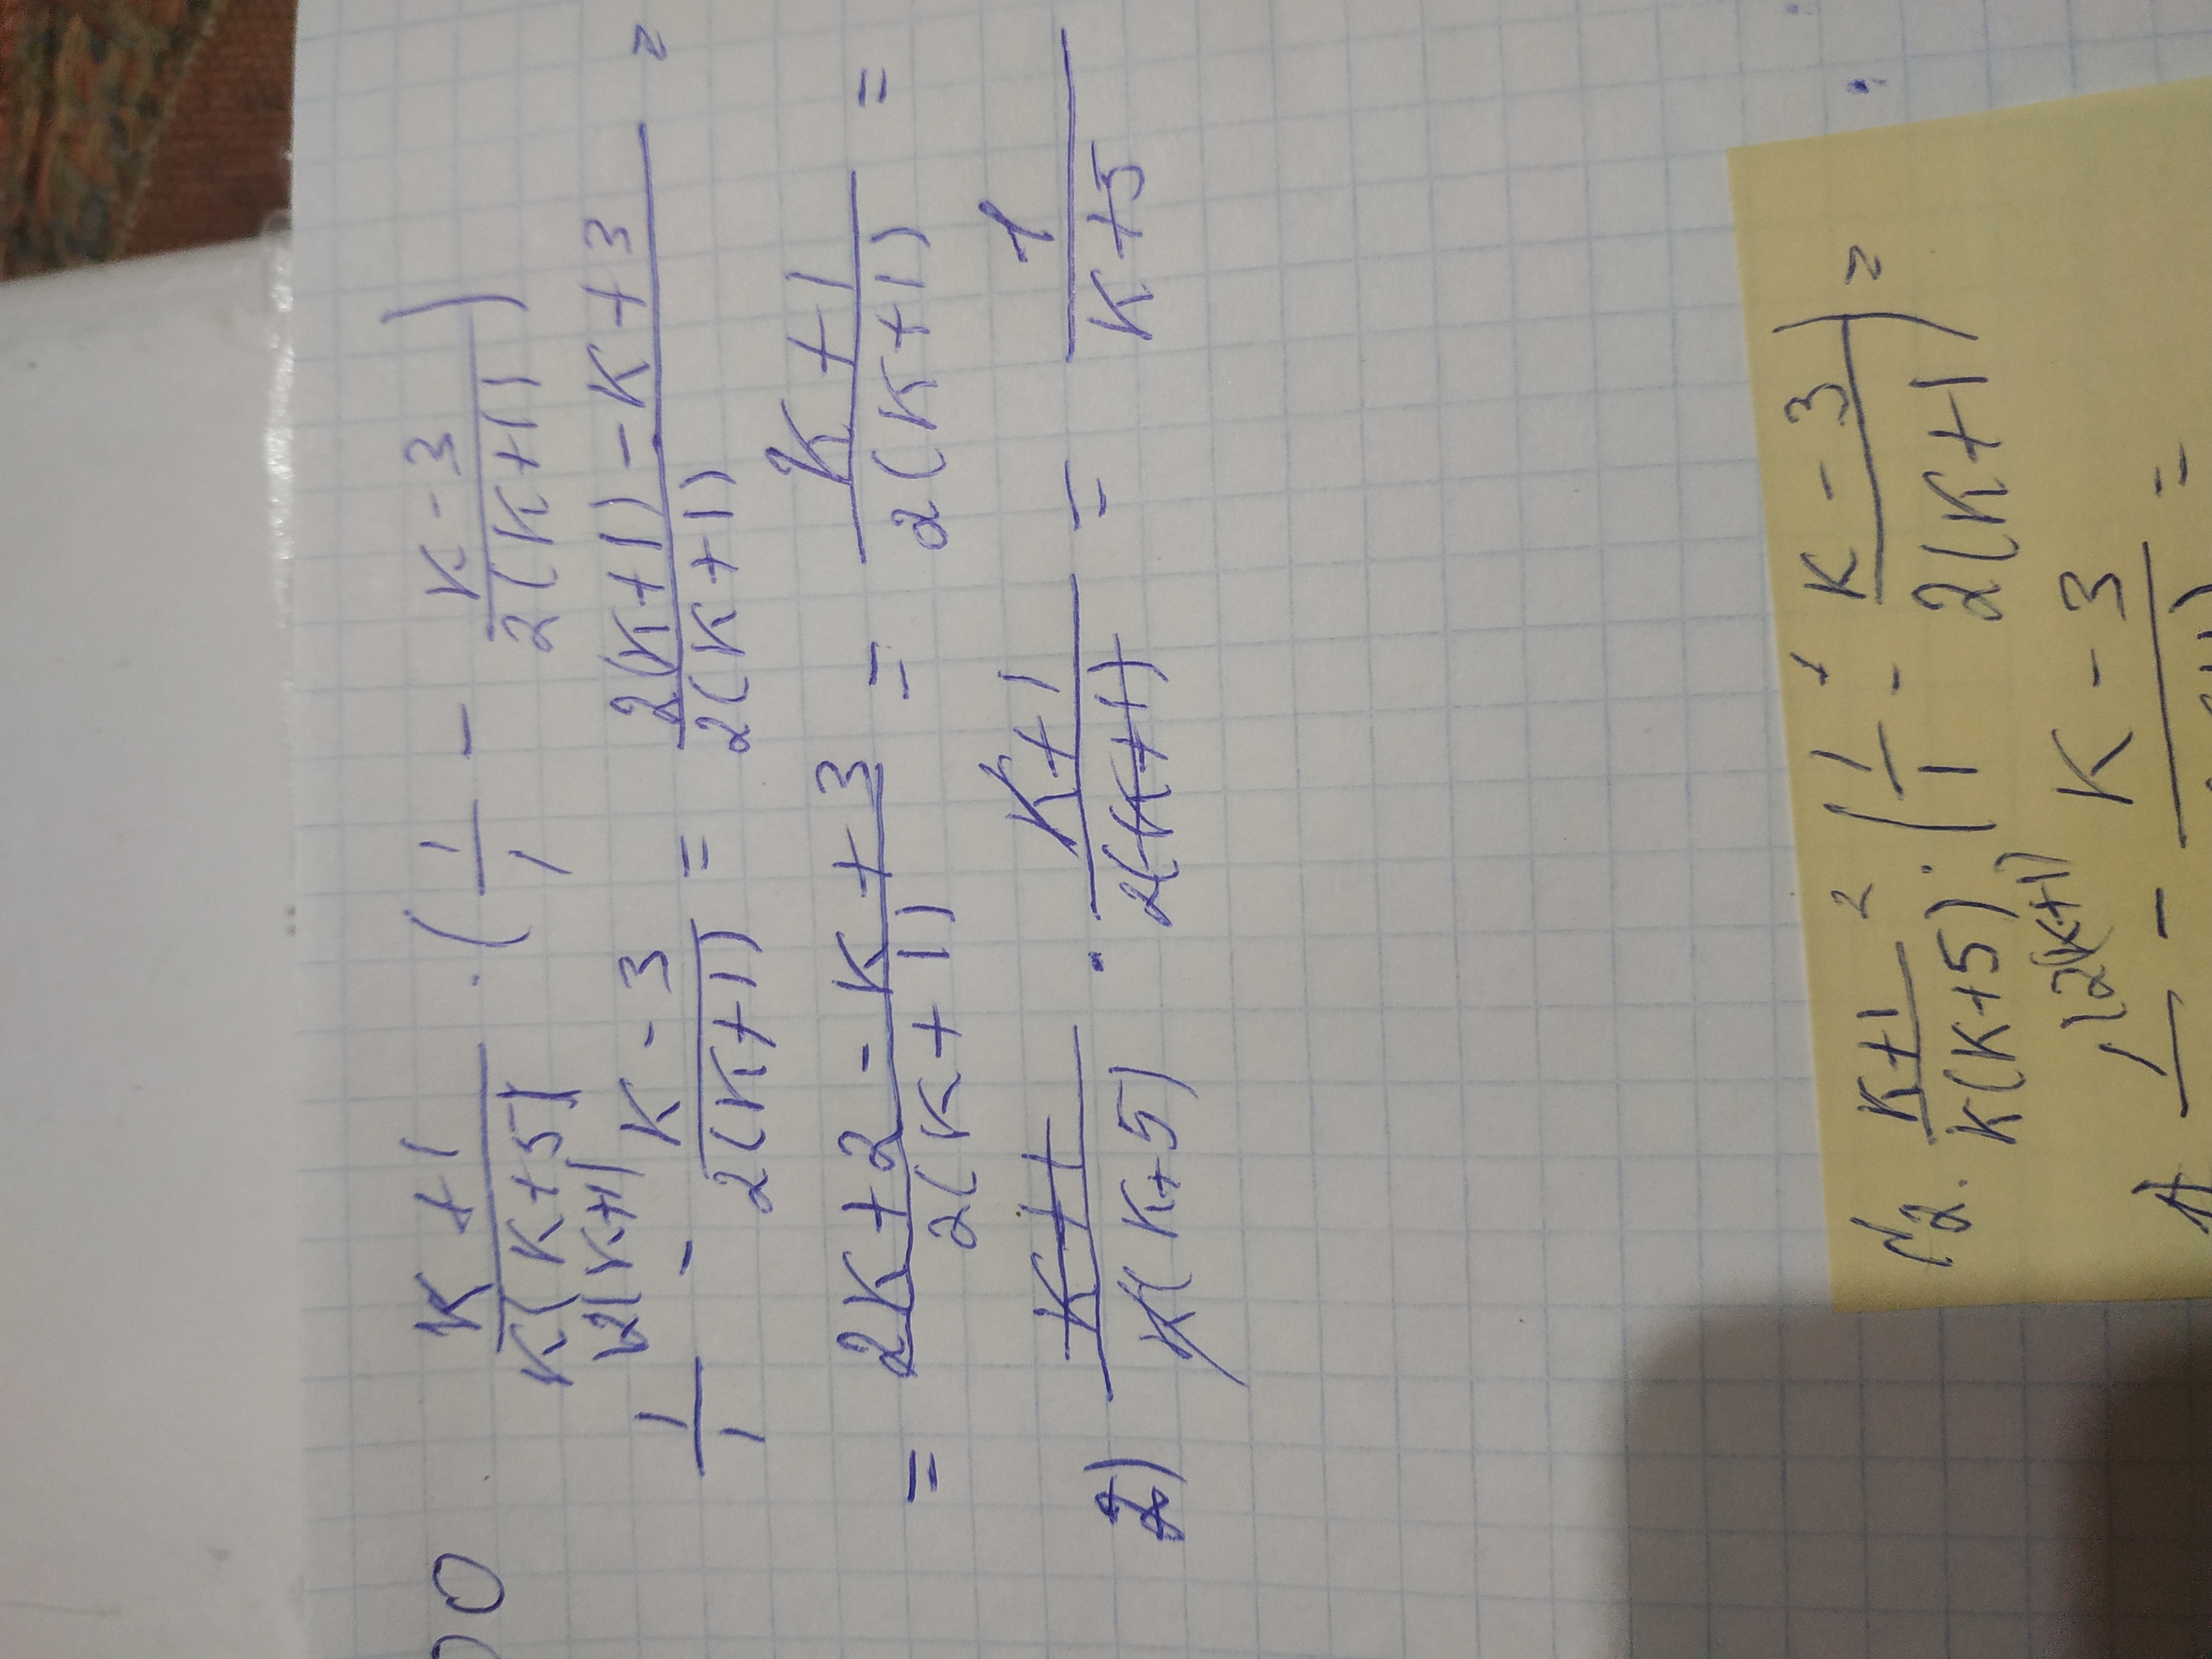 00
K+1/K(K+5) · (1/1 - K-3/2(K+1))
\2(K+1)
1/1 - K-3/2(K+1) = 2(K+1)-K+3/2(K+1) =
= 2K+2-K+3/2(K+1) = K+1/2(K+1) =
2) K+1/K(K+5) · K+1/2(K+1) = 1/K+5
№2. K+1/K(K+5) · (1/1 - K-3/2(K+1)) =
\2(K+1)
1 - K-3 =